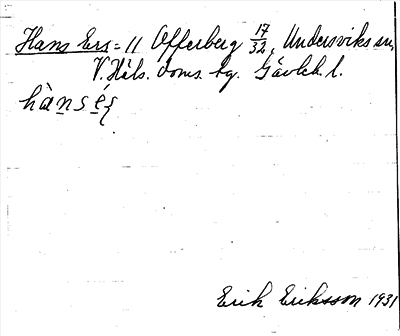 Hans Ers = 11 Offerberg 17/32, Undersviks sn,
V. Häls. doms. sg. Gävleb. l.
hànsé{
Erik Eriksson 1931